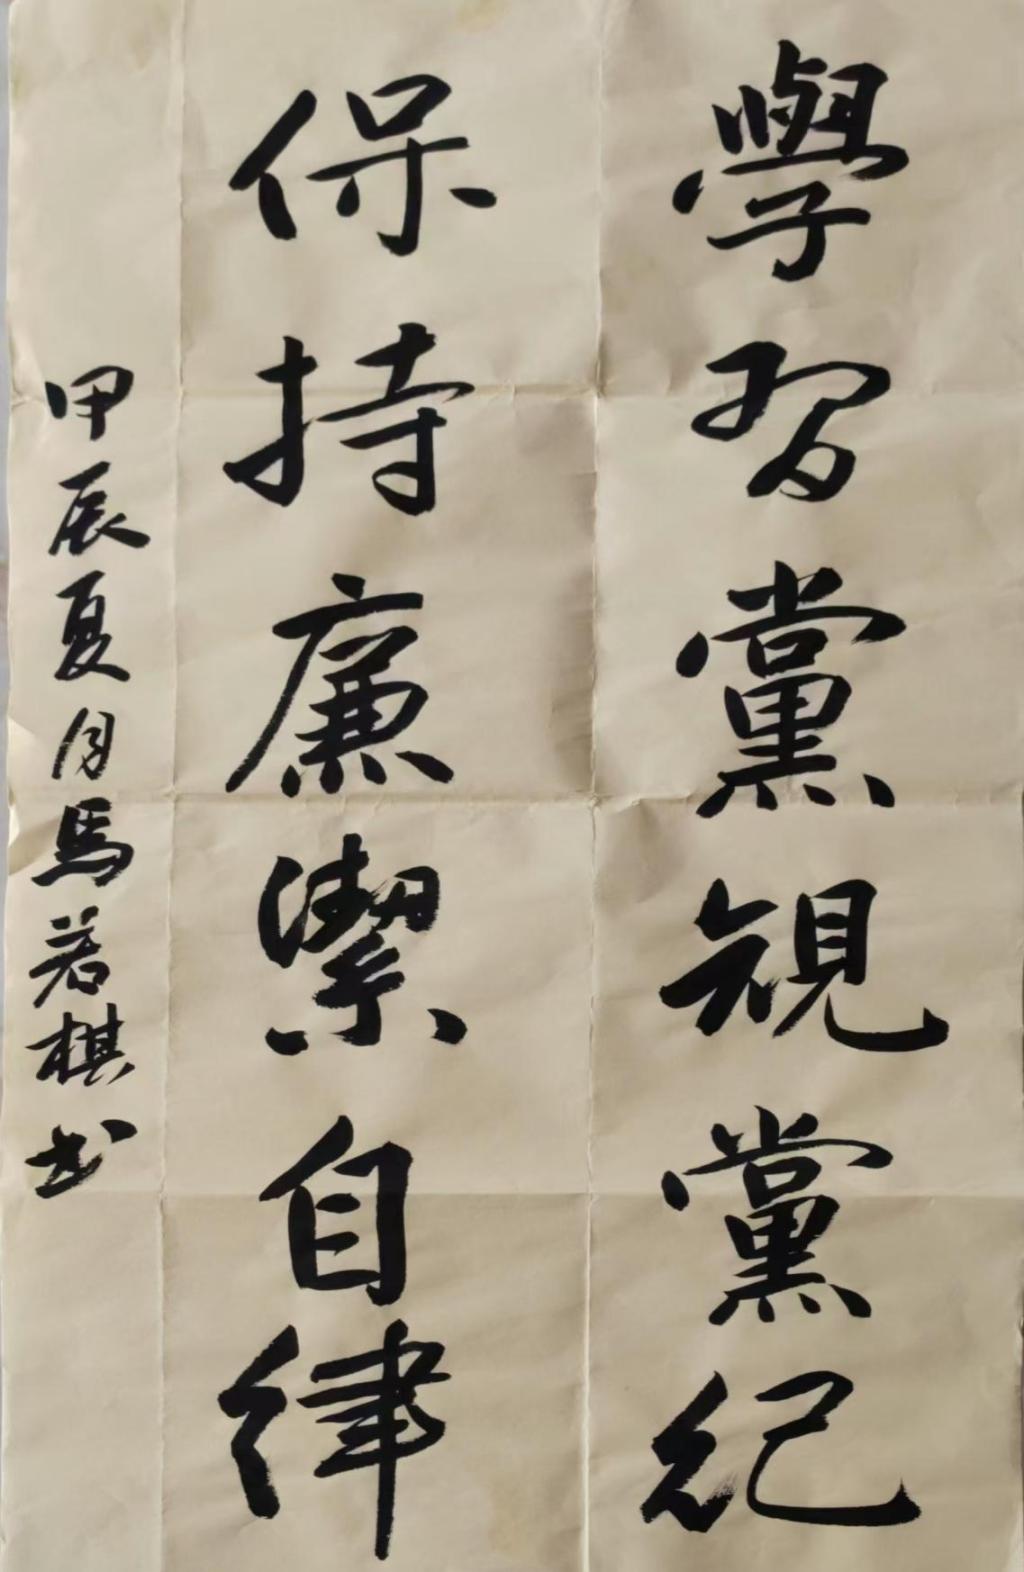 學習黨規黨紀
保持廉潔自律
甲辰夏月馬若棋书